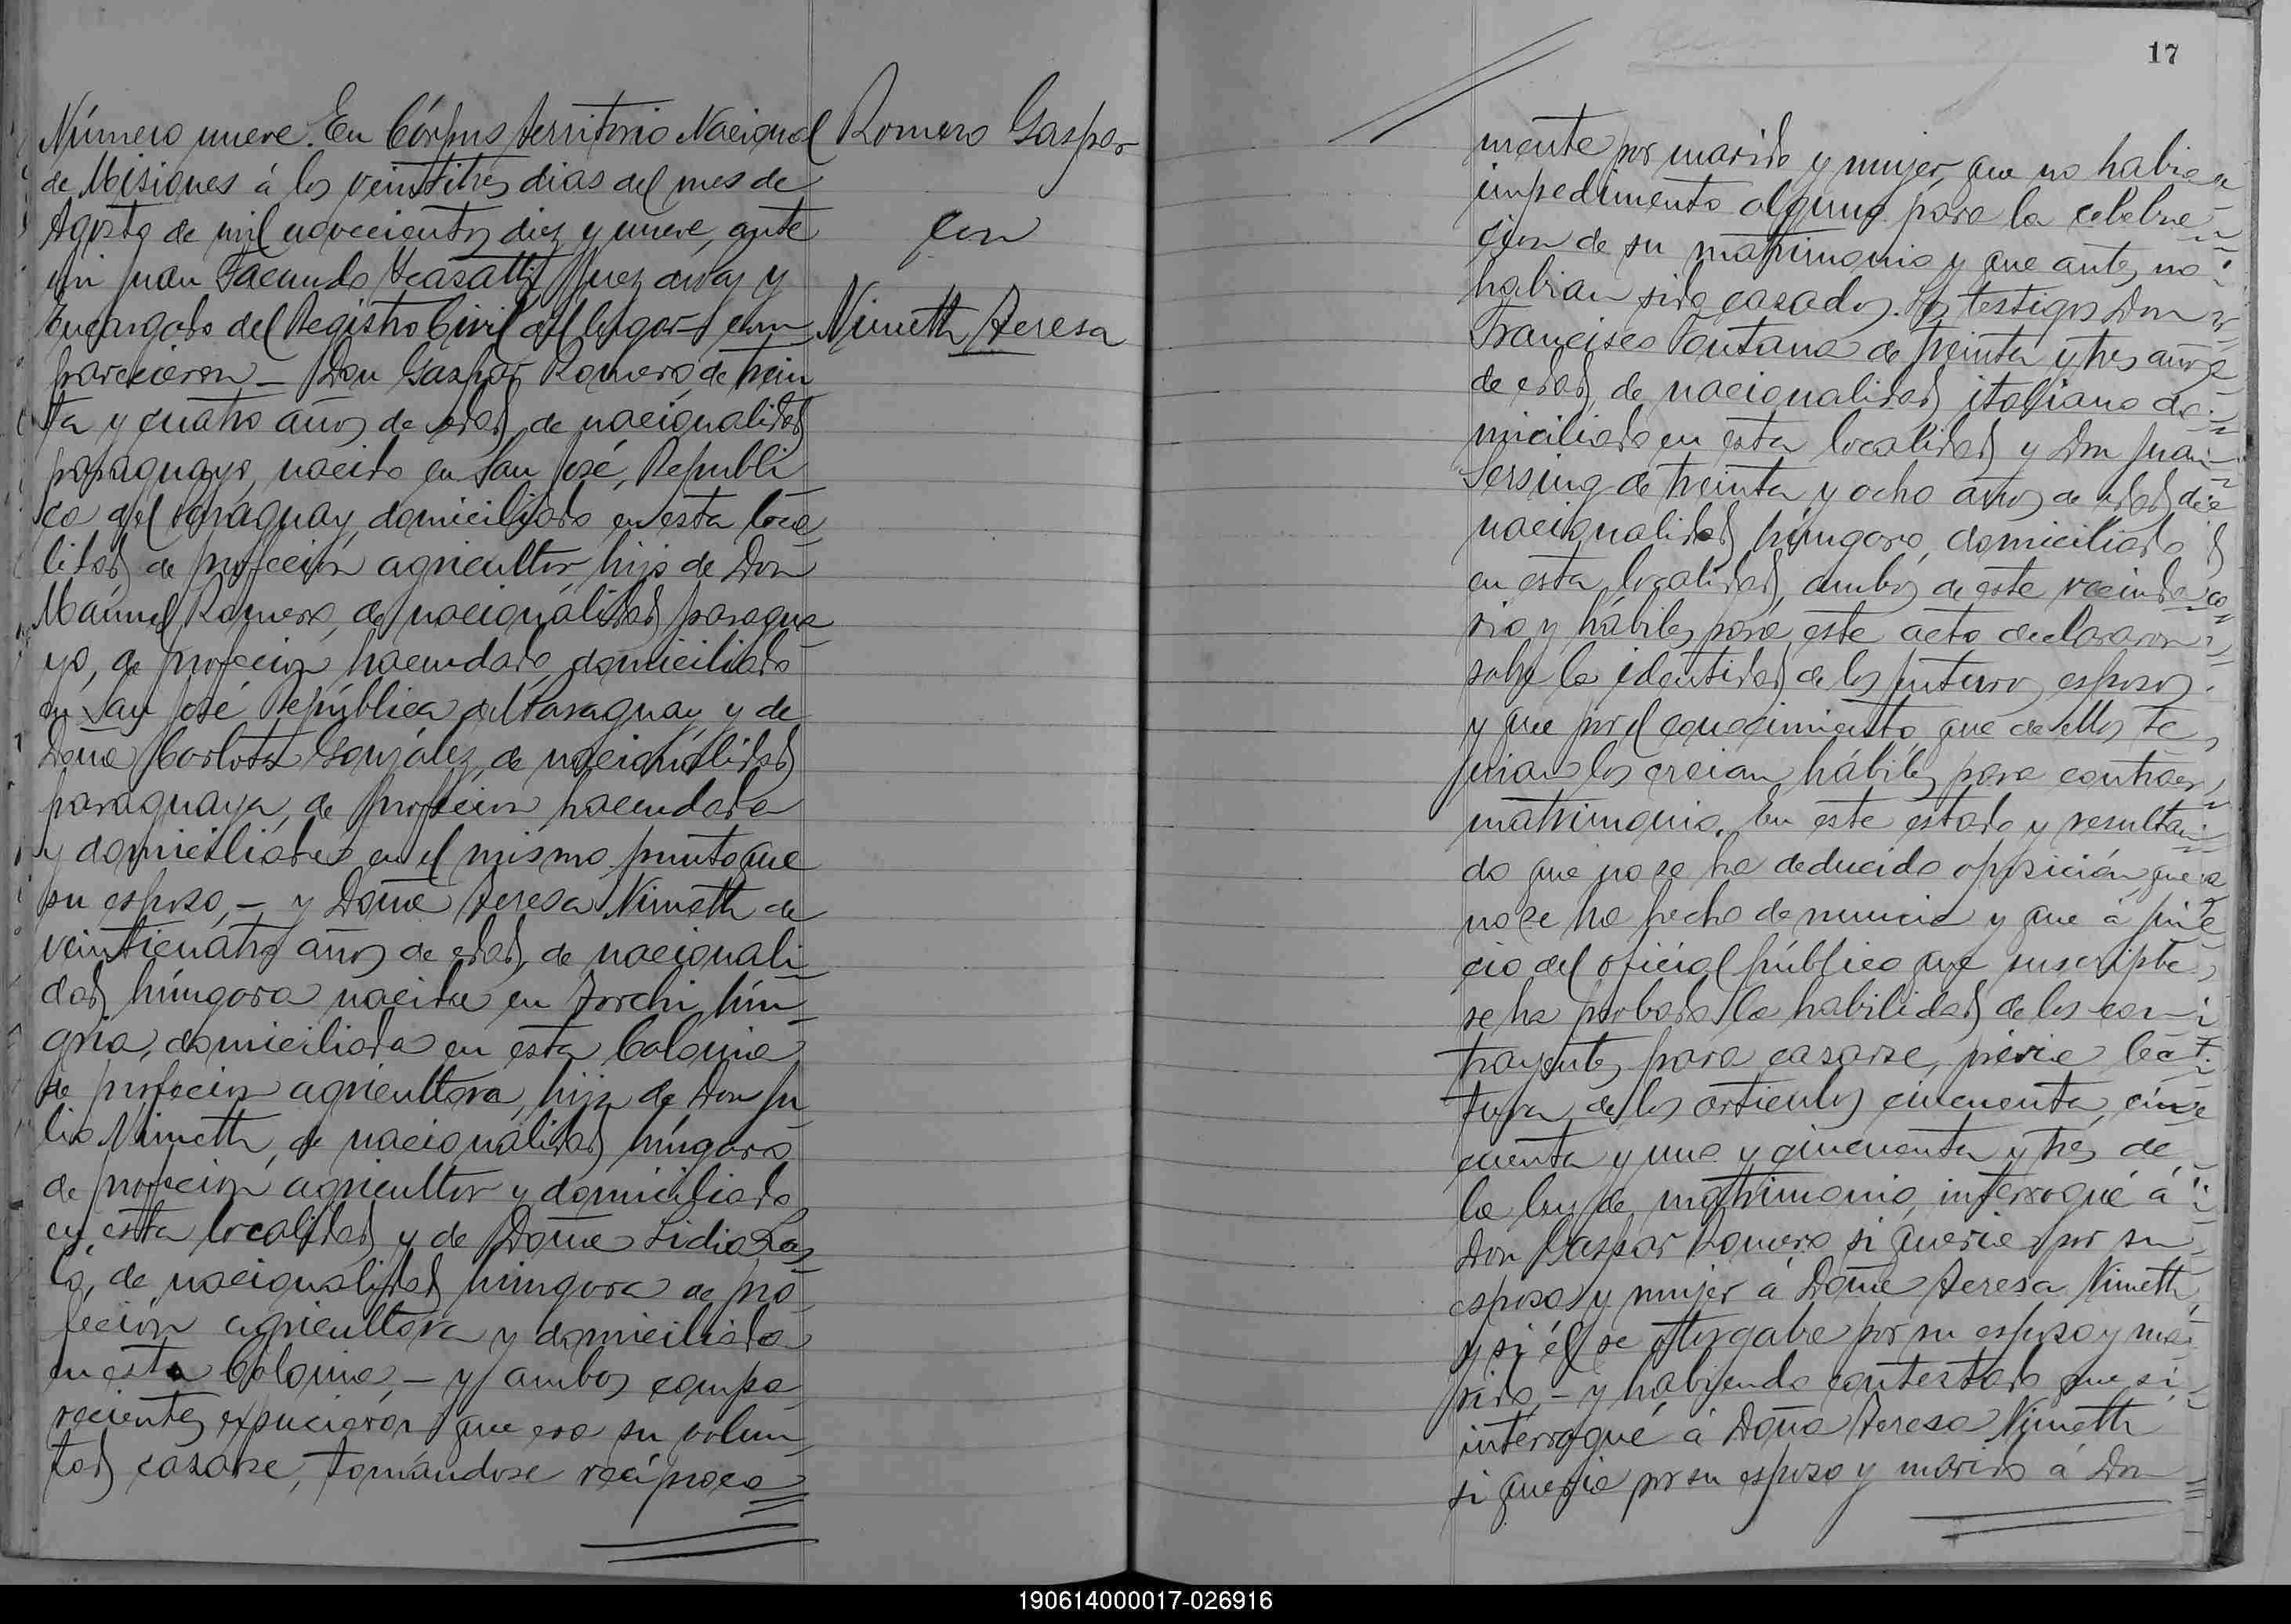 Número nueve. En Córpus territorio Nacional
de Misiones á los veintitres dias del mes de
Agosto de mil novecientos diez y nueve, ante
mi Juan Facundo Juez de Paz y
Encargado del Registro Civil del lugar com
parecieron — Don Gaspar Romero, de trein
ta y cuatro años de edad, de nacionalidad
paraguayo, nacido en San José, Republi
ca del Paraguay, domiciliado en esta loca
lidad de profeción agricultor hijo de Don
Manuel Romero, de nacionálidad paragua
yo, de profecion hacendado, domiciliado
en San José República del Paraguay, y de
Doña Carlota González, de nacionalidad
paraguaya, de profecion hacendada
y domiciliada en el mismo punto que
su esposo, — y Doña Teresa Nimeth de
veinticuatro años de edad, de nacionali
dad húngara nacida en Torchi, Hún
gria, domiciliada en esta Colonia
de profecion agricultora, hija de Don Ju
lio Nimeth, de nacionálidad húngaro
de profecion agricultor y domiciliado
en esta localidad y de Doña Lidia
de nacionalidad húngara de pro
feción agricultora y domiciliada
en esta Colonia, — y ambos compa
recientes expucieron que era su volun
tad casarse, tomándose recíproca
Romero Gaspar
con
Nimeth Teresa
17
mente por marido y mujer, que no habia
impedimento alguno para la celebra
cion de su matrimonio y que antes no
habian sido casados. Los testigos Don
Francisco Fontana de treinta y tres años
de edad, de nacionalidad italiano do
miciliado en esta localidad y Don Juan
Sersing de treinta y ocho años de edad de
nacionalidad húngaro, domiciliado
en esta localidad, ambos de este vecinda
rio y hábiles para este acto declararon
sobre la identidad de los futuros esposos
y que por el conocimiento que de ellos te
nian los creian hábiles para contraer
matrimonio. En este estado y resultan
do que no se ha deducido oposición, que
no se ha hecho denuncia y que á jui
cio del oficial público que suscribe
se ha probado la habilidad de los con
trayentes para casarse, prévia lec
tura de los articulos cincuenta, cin
cuenta y uno y cincuenta y tres de
la ley de matrimonio, interrogué á
Don Gaspar Romero si queria por su
esposa y mujer á Doña Teresa Nimeth,
y si él se otorgaba por su esposo y ma
rido, — y habiendo contestado que si,
interrogué á Doña Teresa Nimeth
si queria por su esposo y marido á Don
190614000017-026916